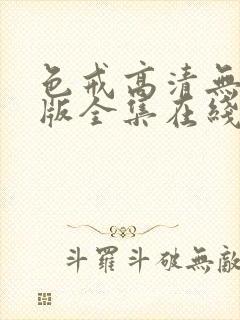 色戒高清無
版全集在綫
斗羅斗破無敵